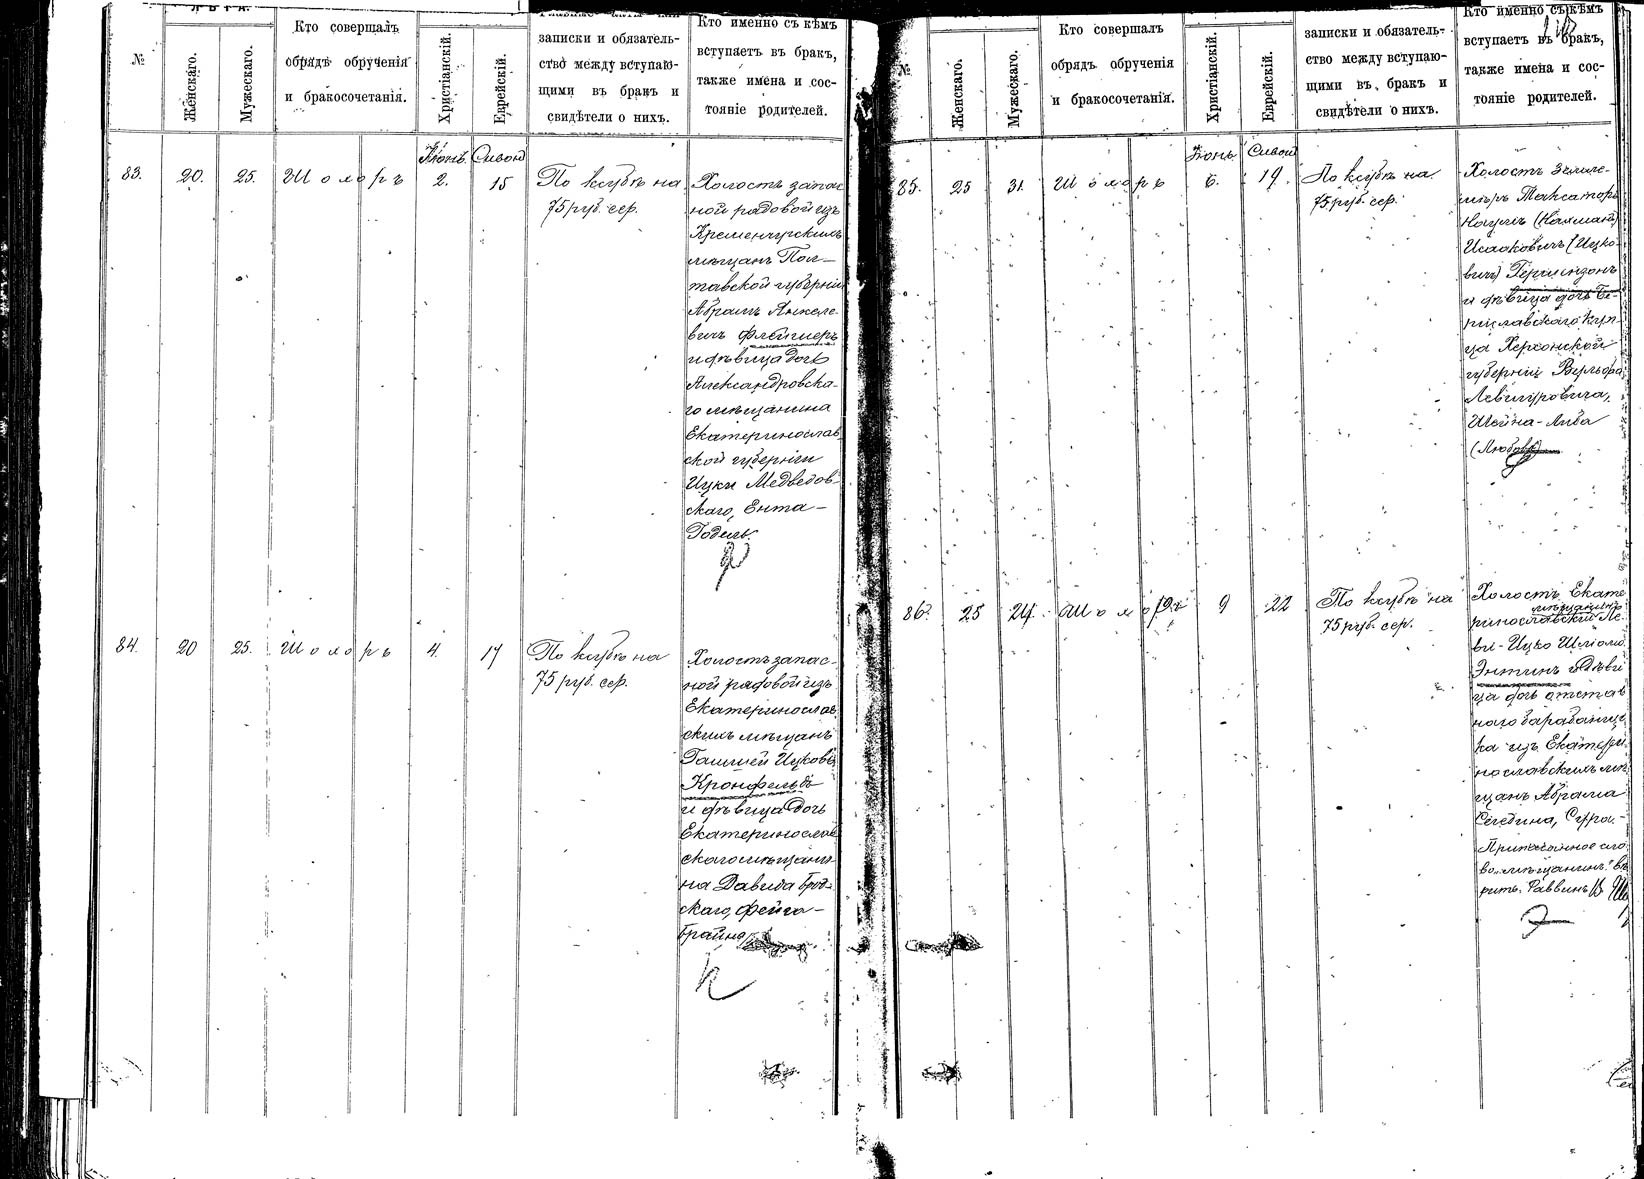 ЛѢТА.
№
Женскаго.
Мужескаго.
Кто совершалъ
обрядъ обрученія
и бракосочетанія.
Христіанскій.
Еврейскій.
записки и обязатель-
ство между вступаю-
щими въ бракъ и
свидѣтели о нихъ.
Кто именно съ кѣмъ
вступаетъ въ бракъ,
также имена и сос-
тояніе родителей.
83.
20.
25.
Шоморъ
Іюнь.
2.
Сивонъ
15
По ксубѣ на
75 руб. сер.
Холостъ запас
ной рядовой изъ
Кременчугскихъ
мѣщанъ Пол-
тавской губерніи
Абрамъ Янкеле-
вичъ Флейшеръ
и дѣвица дочь
Александровска-
го мѣщанина
Екатеринослав
ской губерніи
Ицки Медведов-
скаго, Ента-
Годель.
84.
20
25.
Шоморъ
4.
17
По ксубѣ на
75 руб. сер.
Холостъ запас-
ной рядовой изъ
Екатеринослав
скихъ мѣщанъ
Ицковъ
Кронфельдъ
и дѣвица дочь
Екатеринослав
скаго мѣщани-
на Давида Брод-
скаго, Фейга-
Брайна
№
Женскаго.
Мужескаго.
Кто совершалъ
обрядъ обрученія
и бракосочетанія.
Христіанскій.
Еврейскій.
записки и обязатель-
ство между вступаю-
щими въ бракъ и
свидѣтели о нихъ.
Кто именно съ кѣмъ
вступаетъ въ бракъ,
также имена и сос-
тояніе родителей.
85.
25
31.
Шоморъ
Іюнь.
6.
Сивонъ
19.
По ксубѣ на
75 руб. сер.
Холостъ Землемѣръ Таксаторъ
Наумъ (Нахманъ)
Исааковичъ (Ицко-
вичъ) Гершензонъ
и дѣвица дочь Бе-
риславскаго куп-
ца Херсонской
губерніи Вульфа
Шейна-Либа
(Любовь)
86.
25
24.
Шоморъ
9
22
По ксубѣ на
75 руб. сер.
Холостъ Екате-
мѣщанинъ
ринославскій Ле-
ви-Ицко
Энтинъ и дѣви
ца дочь отстав
наго барабанщи
ка изъ Екатери
нославскихъ мѣ
щанъ Абрама
Сегедина, Сура.-
Приписанное сло
во „мѣщанинъ" вѣ
рить. Раввинъ